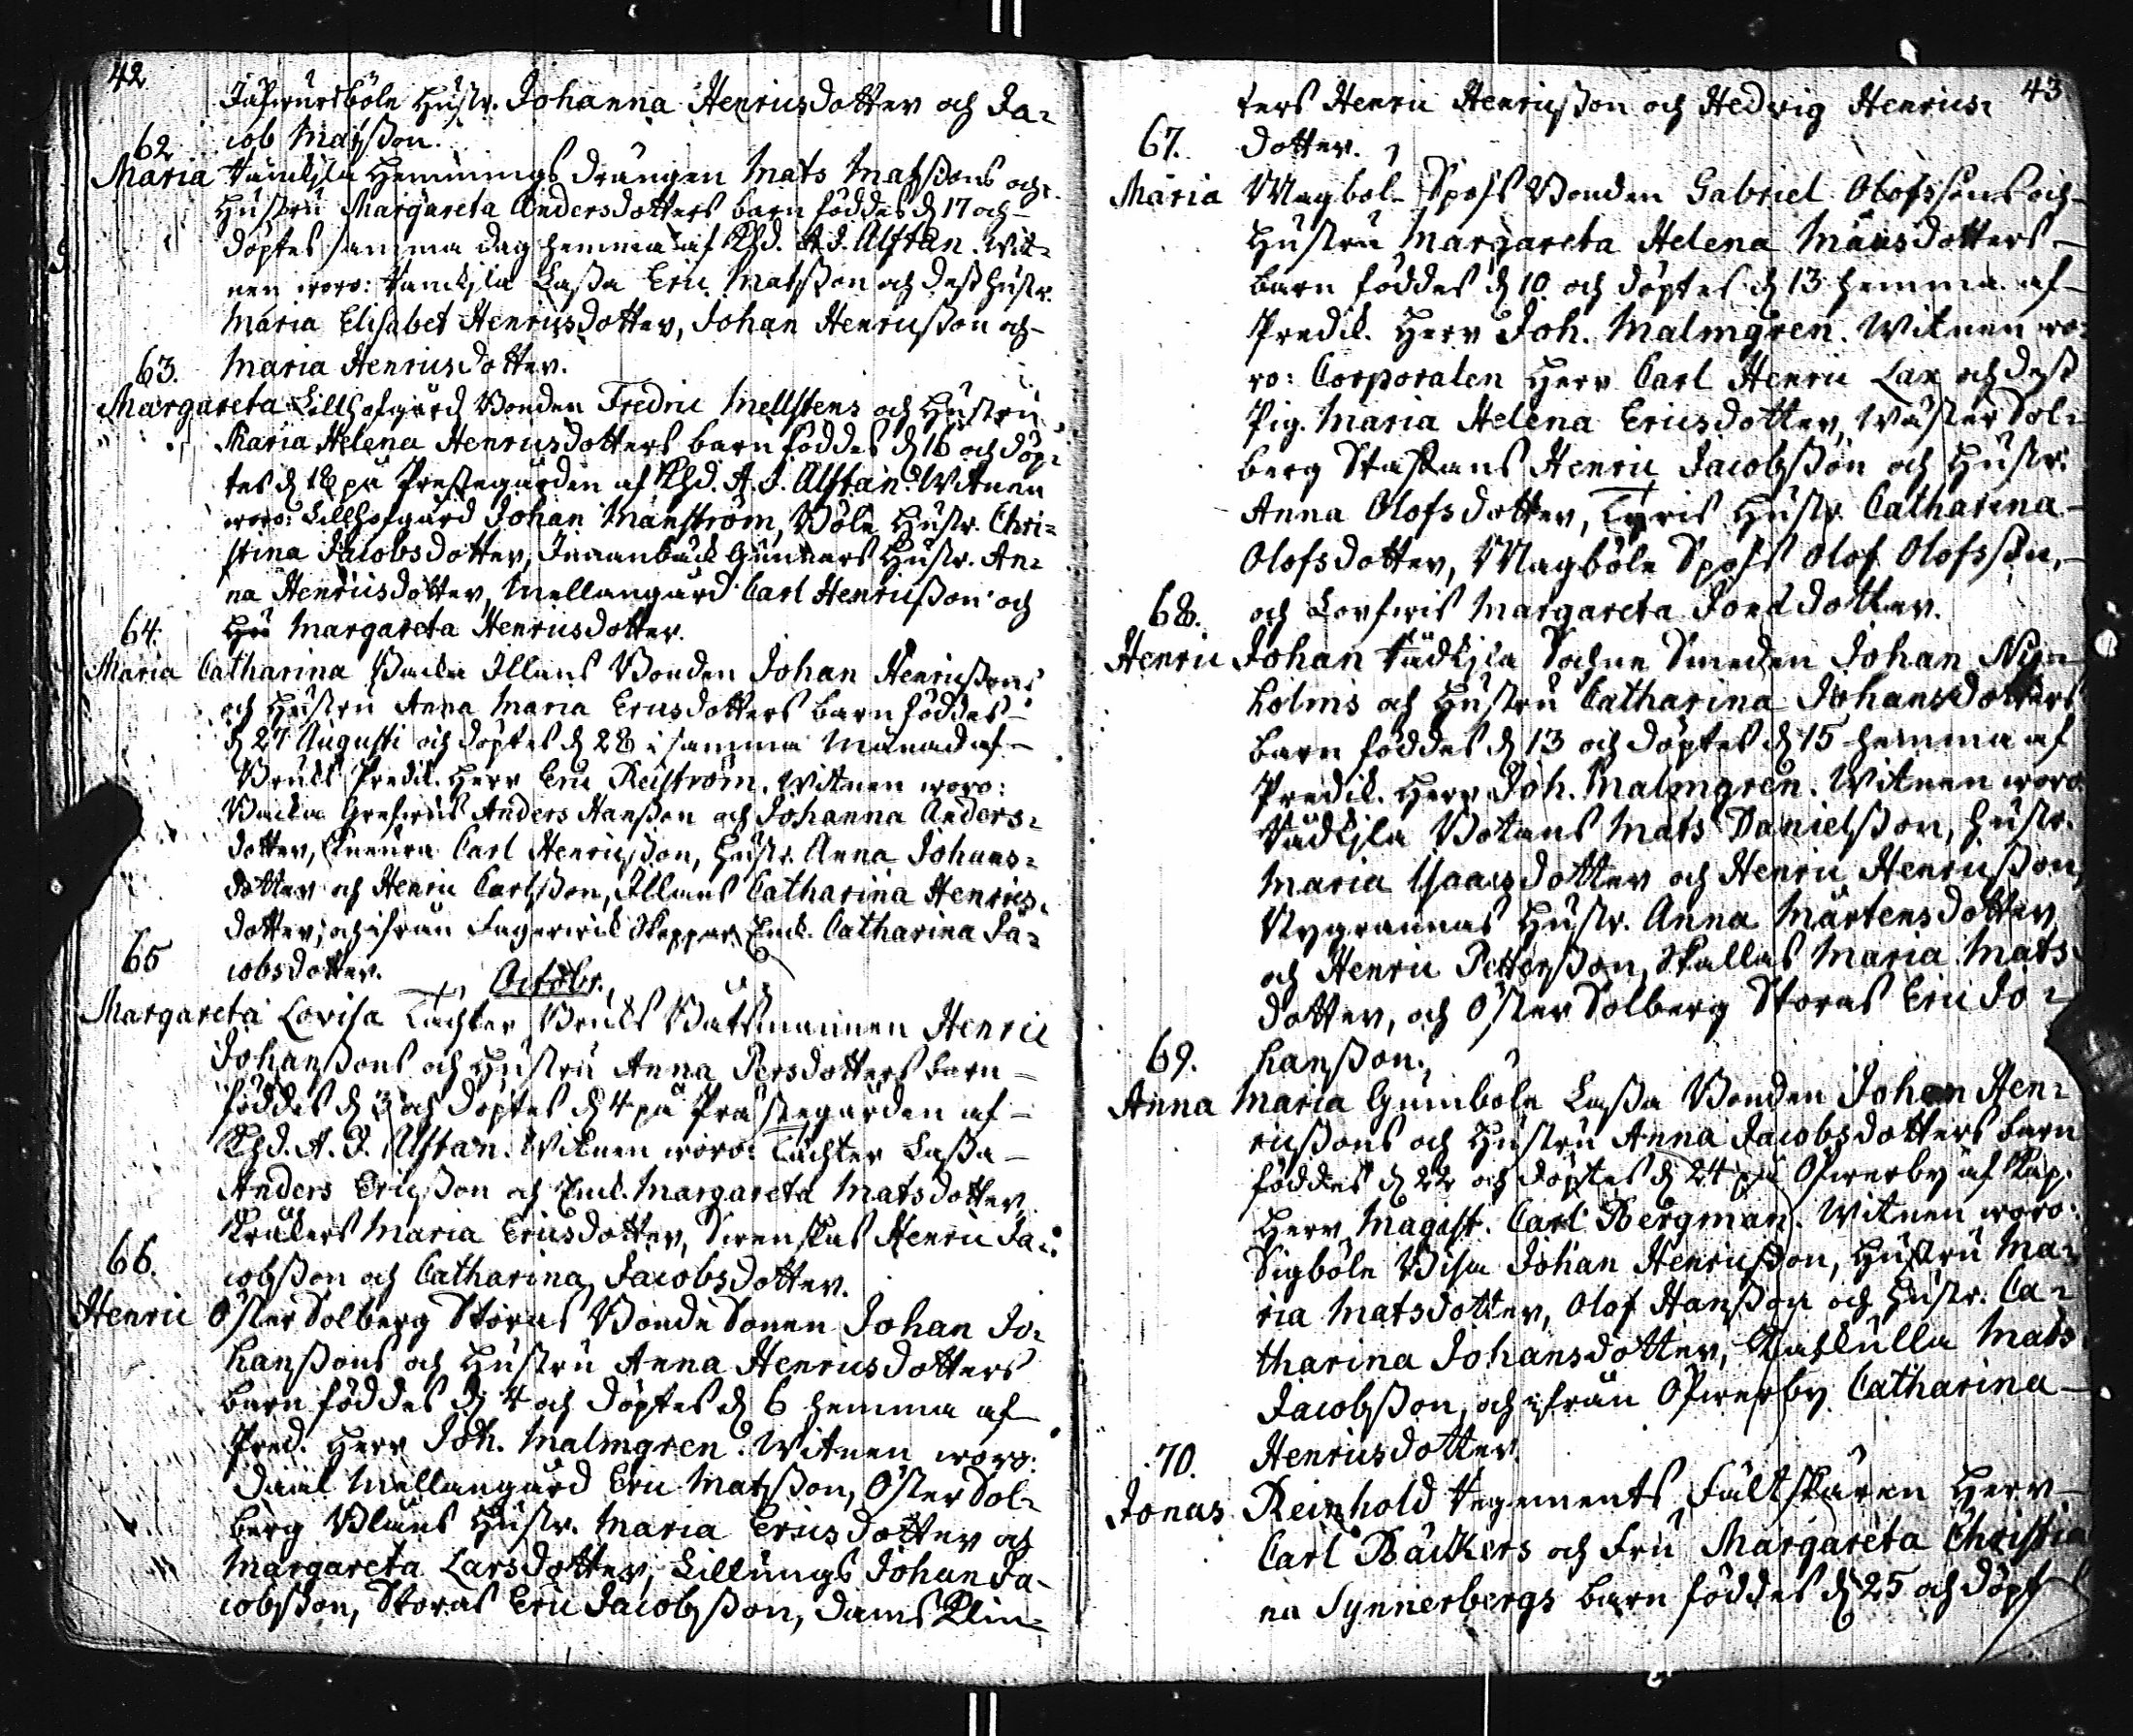 42
Hustr. Johanna Henricsdotter och Ja=
62 cob Matsson.
Maria Hemmings Drängen Mats Matssons och
Hustru Margareta Andersdotters barn föddes d. 17 och
döptes samma dag hemma af Khd. A. J. Alftan. Wit=
nen woro: Lassa Eric Matsson och dess Hustr.
Maria Elisabet Henricsdotter, Johan Henricsson och
63. Maria Henricsdotter.
Margareta Lillhofgård Bonden Fredric Mellstens och Hustru
Maria Helena Henricsdotters barn föddes d. 16 och döp=
tes d. 18 på Prestegården af Khd. A. J. Alftan. Witnen
woro: Lillhofgård Johan Manström, Böle Hustr. Chri=
stina Jacobsdotter, Gunnars Hustr. An=
na Henricsdotter, Mellangård Carl Henricsson och
64. Hu Margareta Henricsdotter.
Maria Catharina Backa Illans Bonden Johan Henricssons
och Hustru Anna Maria Ericsdotters barn föddes
d. 27 Augusti och döptes d. 28 i samma månad af
Bruks Predik. Herr Eric Reiström. Witnen woro:
Backa Grefwas Anders Hansson och Johanna Anders=
dotter, Carl Henricsson, Hustr. Anna Johans=
dotter och Henric Carlsson, Illans Catharina Henrics=
dotter, och ifrån Fagerwik Enk. Catharina Ja=
65 cobsdotter.
Octobr.
Margareta Lovisa Täckter Bruks Båtsmannen Henric
Johanssons och Hustru Anna Persdotters barn
föddes d. 3 och döptes d. 4 på Prästegården af
Khd. A. J. Alftan. Witnen woro: Täckter Lassa
Anders Ericsson och Enk. Margareta Matsdotter,
Maria Ericsdotter, Swenskas Henric Ja=
66. cobsson och Catharina Jacobsdotter.
Henric Öster Solberg Storas Bonde Sonen Johan Jo=
hanssons och Hustru Anna Henricsdotters
barn föddes d. 4 och döptes d. 6 hemma af
Pred. Herr Joh. Malmgren. Witnen woro:
Daal Mellangård Eric Matsson, Öster Sol=
berg Blåus Hustr. Maria Ericsdotter och
Margareta Larsdotter, Lillungs Johan Ja=
cobsson, Storas Eric Jacobsson,
43
ters Henric Henricsson och Hedvig Henrics=
67. dotter.
Maria Magbol Spofs Bonden Gabriel Olofssons och
Hustru Margareta Helena Månsdotters
barn föddes d. 10 och döptes d. 13 hemma af
Predik. Herr Joh. Malmgren. Witnen wo=
ro: Corporalen Herr Carl Henric Lax och dess
Pig. Maria Helena Ericsdotter, Wäster Sol=
berg Staffans Henric Jacobsson och Hustr.
Anna Olofsdotter, Tyris Hustr. Catharina
Olofsdotter, Magböle Spofs Olof Olofsson,
68. och Margareta Jonadotter.
Henric Johan Wäcksla Sochne Smeden Johan Ny=
holms och Hustru Catharina Johansdotters
barn föddes d. 13 och döptes d. 15 hemma af
Predik. Herr Joh. Malmgren. Witnen woro:
Wäcksla Botans Mats Danielsson, Hustr.
Maria Isaacsdotter och Henric Henricsson,
Nygrannas Hustr. Anna Mårtensdotter
och Henric Pettersson, Skallas Maria Mats=
dotter, och Öster Solberg Storas Eric Jo=
69. hansson.
Anna Maria Gumböle Lassa Bonden Johan Hen=
ricssons och Hustru Anna Jacobsdotters barn
föddes d. 22 och döptes d. 24 på Öfwerby af Kap.
Herr Magist. Carl Bergman. Witnen woro:
Sigböle Wisa Johan Henricsson, Hustru Ma=
ria Matsdotter, Olof Hansson och Hustr. Ca=
tharina Johansdotter, Mats
Jacobsson, och ifrån Öfwerby Catharina
70. Henricsdotter.
Jonas Reinhold Regements Fältskären Herr
Carl Bäckers och Fru Margareta Christi
na Synnerbergs barn föddes d. 25 och döpt